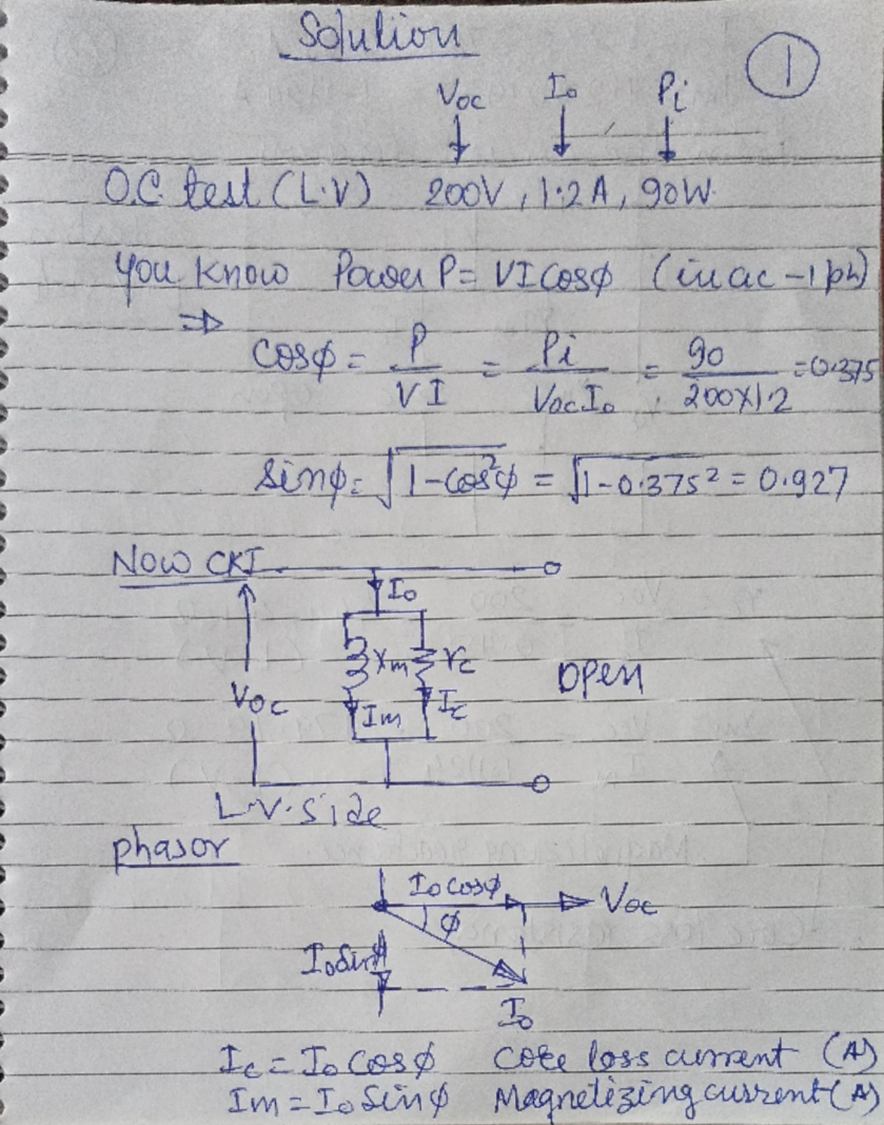 Solution
1
Voc Io Pi
O.C. test (L.V) 200V, 1.2A, 90W.
You know Power P = VI Cosφ (in ac - 1 ph)
⇒
Cosφ = P/VI = Pi/VocIo = 90/200×1.2 = 0.375
Sinφ = √1-Cos²φ = √1-0.375² = 0.927
Now CKT
Io
Xm rc
OPen
Voc
Im Ic
L.V. Side
Phasor
Io cosφ Voc
φ
Io Sinφ
Io
Ic = Io Cosφ Core loss current (A)
Im = Io Sinφ Magnetizing current (A)